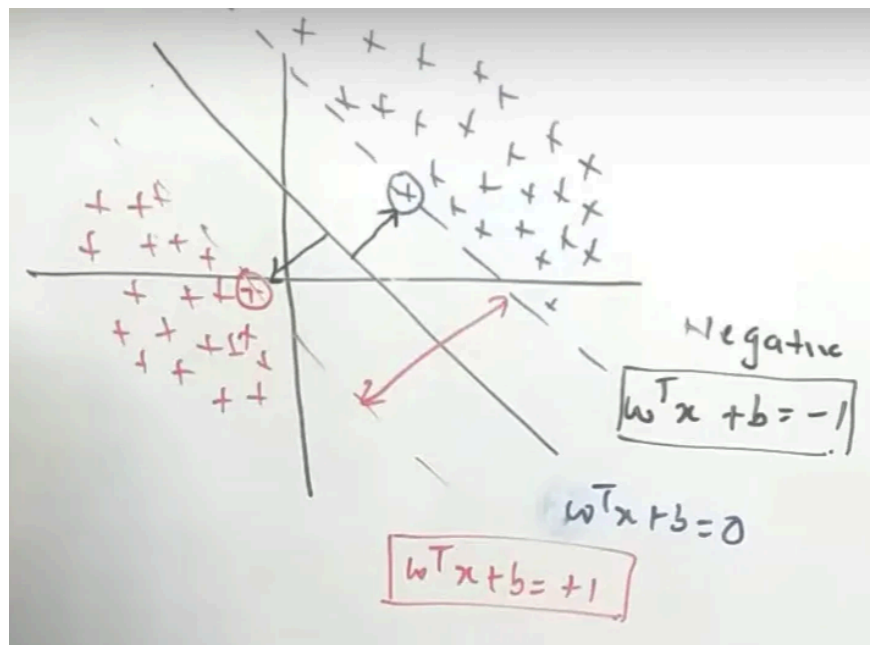 Negative
wᵀx + b = -1
wᵀx + b = 0
wᵀx + b = +1